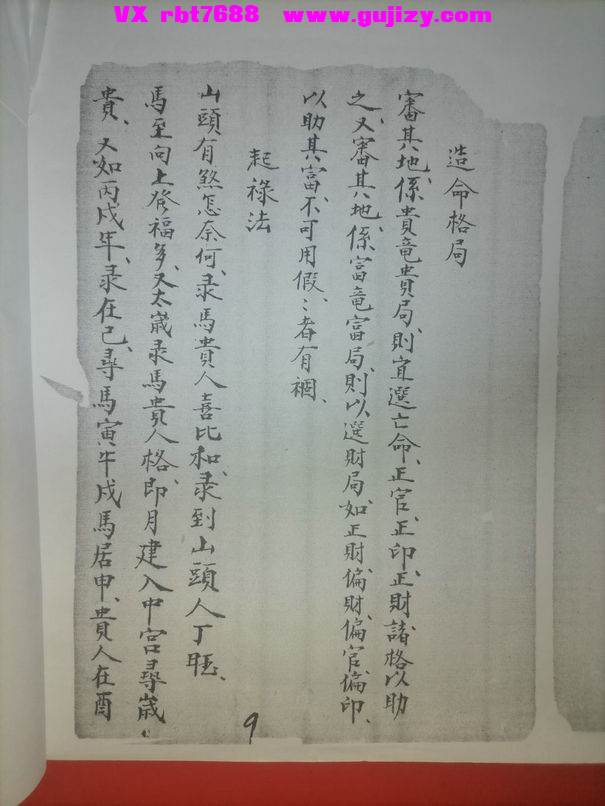 VX rbt7688 www.gujizy.com
造命格局
審其地、係貴竜貴局、則宜選亡命、正官、正印、正財、諸格以助
之、又審其地、係富竜富局、則以選財局、如正財、偏財、偏官、偏印、
以助其富、不可用假、〻者有禍、
起祿法
山頭有煞怎奈何、录馬貴人喜比和、录到山頭人丁旺、
馬至向上發福多、又太歲录馬貴人格、即月建入中宮尋歲
貴、又如丙戌年、录在巳、尋馬寅午戌馬居申、貴人在酉
9